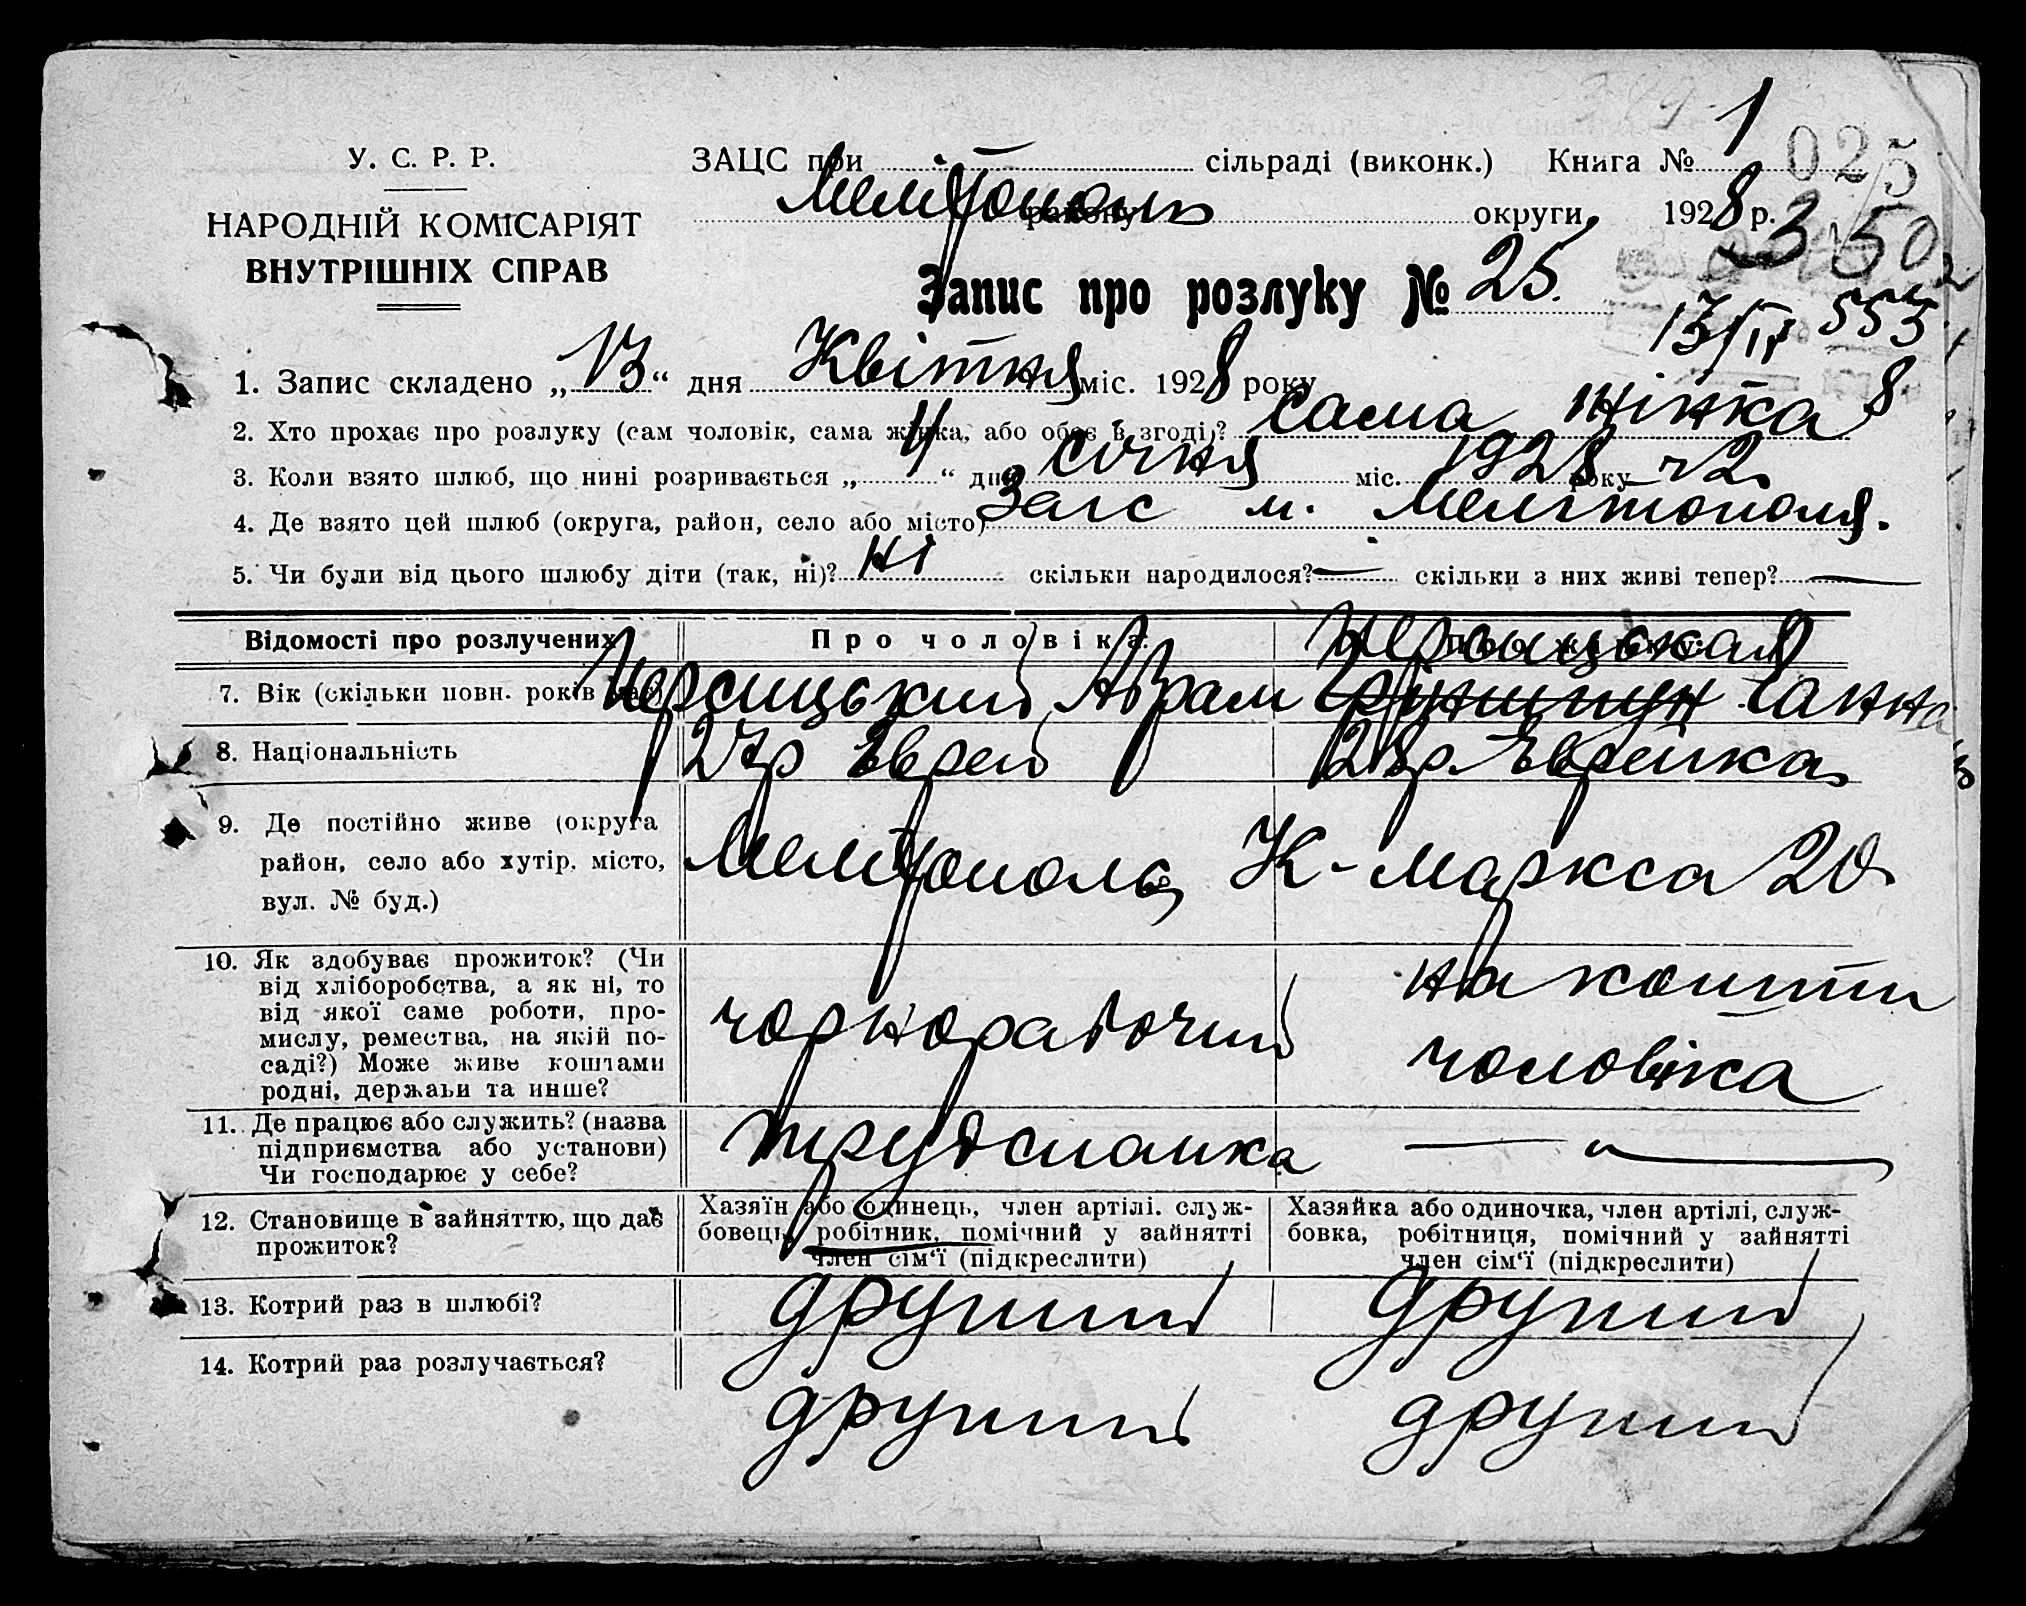 У. С. Р. Р.
НАРОДНІЙ КОМІСАРІЯТ
ВНУТРІШНІХ СПРАВ
ЗАЦС при сільраді (виконк.) Книга № 1
025
Мелітополь району округи 1928 р.
3 50
Запис про розлуку № 25.
13/IV 555
1. Запис складено „13“ дня Квітня міс. 1928 року
2. Хто прохає про розлуку (сам чоловік, сама жінка, або обоє в згоді)? Сама жінка
3. Коли взято шлюб, що нині розривається „4“ дня січня міс. 1928 року
4. Де взято цей шлюб (округа, район, село або місто) Загс м. Мелітополя.
5. Чи були від цього шлюбу діти (так, ні)? ні скільки народилося? — скільки з них живі тепер? —
Відомості про розлучених Про чоловіка
7. Вік (скільки повн. років має) Персицький Абрам Персицькая Ганна
8. Національність 27р Єврей 28р. Єврейка
9. Де постійно живе (округа
район, село або хутір, місто,
вул. № буд.)
Мелітополь, К-Маркса 20
10. Як здобуває прожиток? (Чи
від хліборобства, а як ні, то
від якої саме роботи, про-
мислу, ремества, на якій по-
саді?) Може живе коштами
родні, держави та инше?
чорнорабочий
на кошти
чоловіка
11. Де працює або служить? (назва
підприємства або установи)
Чи господарює у себе?
— " —
12. Становище в зайняттю, що дає
прожиток?
Хазяїн або одинець, член артілі, служ-
бовець, робітник, помічний у зайнятті
член сім‘ї (підкреслити)
Хазяйка або одиночка, член артілі, служ-
бовка, робітниця, помічний у зайнятті
член сім‘ї (підкреслити)
13. Котрий раз в шлюбі? другий другий
14. Котрий раз розлучається? другий другий